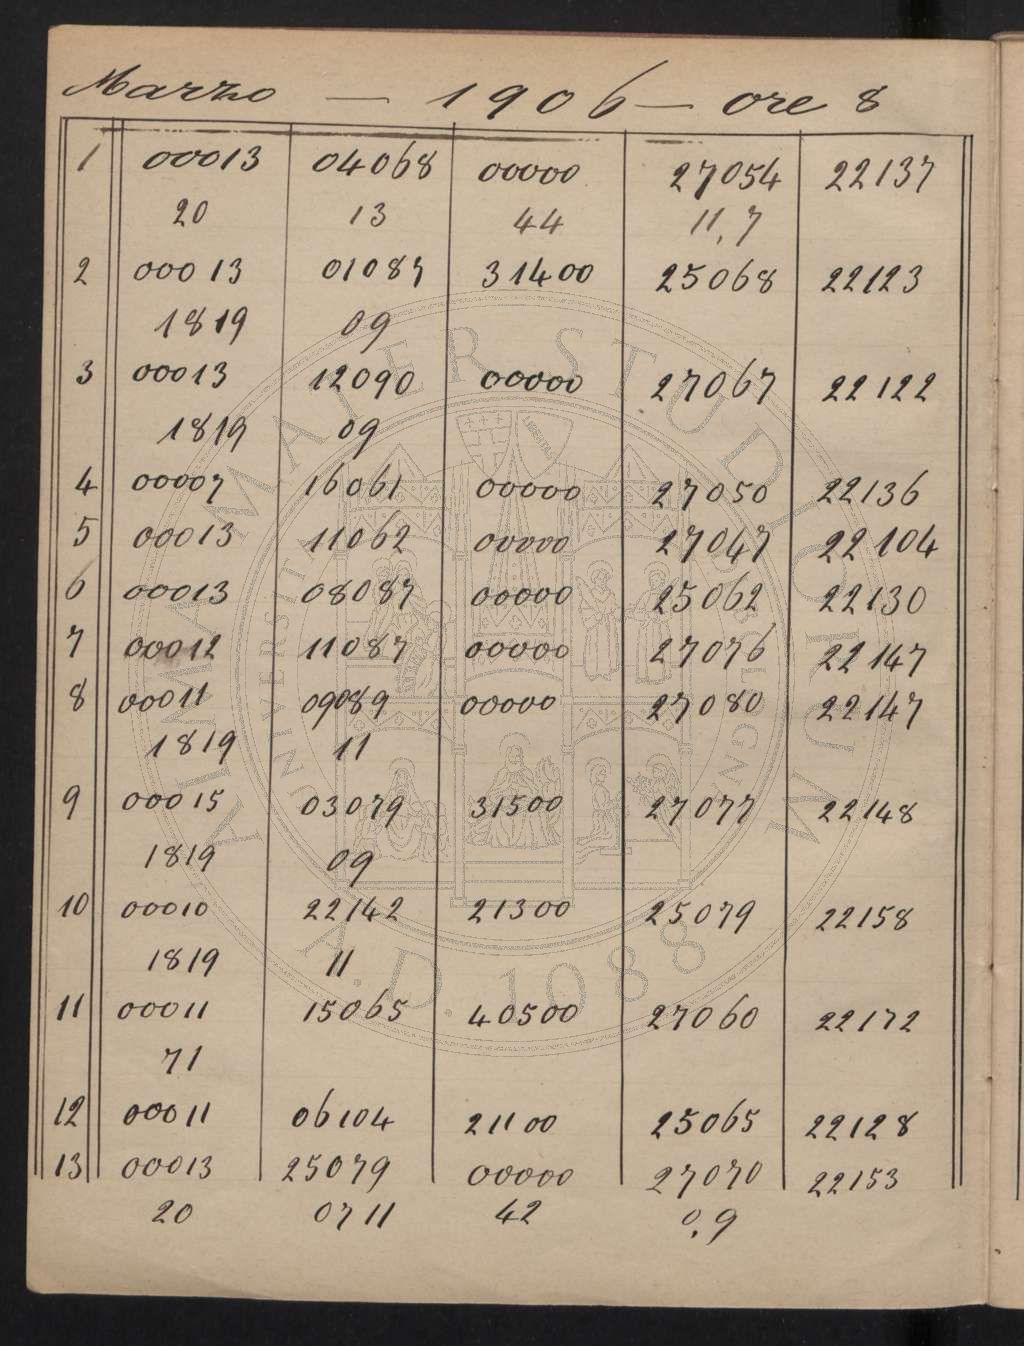 Marzo — 1906 — ore 8
1 00013 04068 00000 27054 22137
20 13 44 11,7
2 00013 01087 31400 25068 22123
1819 09
3 00013 12090 00000 27067 22122
1819 09
4 00007 16061 00000 27050 22136
5 00013 11062 00000 27047 22104
6 00013 08087 00000 25062 22130
7 00012 11087 00000 27076 22147
8 00011 09089 00000 27080 22147
1819 11
9 00015 03079 31500 27077 22148
1819 09
10 00010 22142 21300 25079 22158
1819 11
11 00011 15065 40500 27060 22172
71
12 00011 06104 21100 25065 22128
13 00013 25079 00000 27070 22153
20 0711 42 0,9
ALMA MATER STUDIORUM
UNIVERSITÀ DI BOLOGNA
A.D. 1088